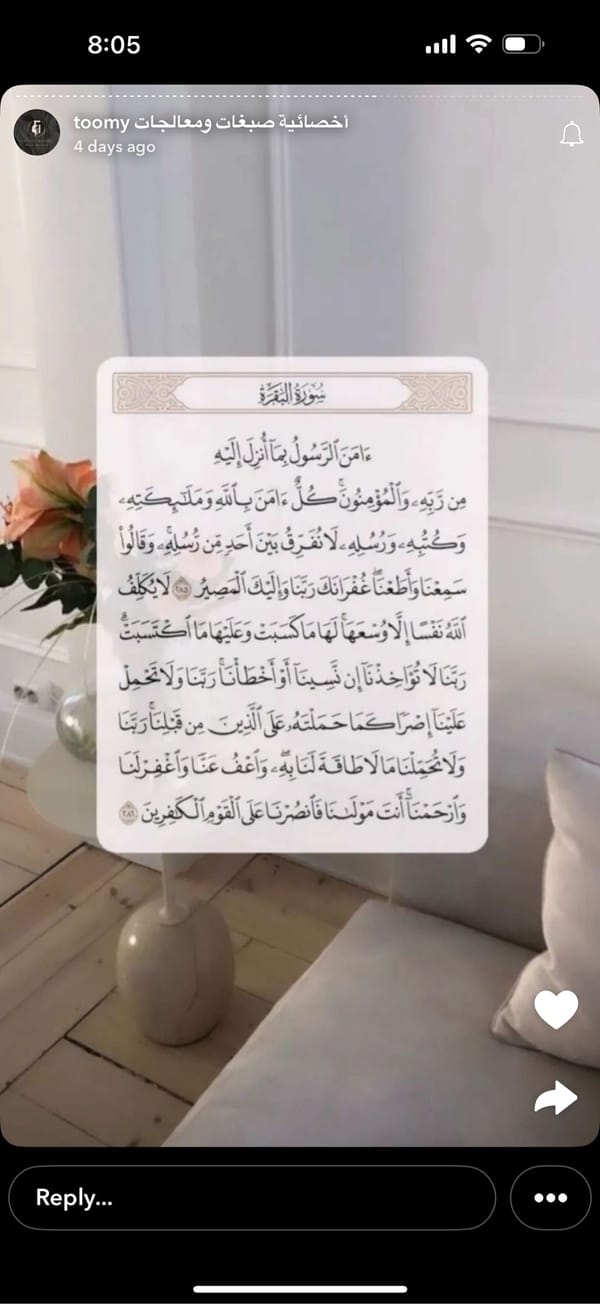 8:05
toomy أخصائية صبغات ومعالجات
4 days ago
سُورَةُ البَقَرَةِ
ءَامَنَ ٱلرَّسُولُ بِمَآ أُنزِلَ إِلَيْهِ
مِن رَّبِّهِۦ وَٱلْمُؤْمِنُونَۚ كُلٌّ ءَامَنَ بِٱللَّهِ وَمَلَٰٓئِكَتِهِۦ
وَكُتُبِهِۦ وَرُسُلِهِۦ لَا نُفَرِّقُ بَيْنَ أَحَدٍ مِّن رُّسُلِهِۦۚ وَقَالُوا۟
سَمِعْنَا وَأَطَعْنَاۖ غُفْرَانَكَ رَبَّنَا وَإِلَيْكَ ٱلْمَصِيرُ ٢٨٥ لَا يُكَلِّفُ
ٱللَّهُ نَفْسًا إِلَّا وُسْعَهَاۚ لَهَا مَا كَسَبَتْ وَعَلَيْهَا مَا ٱكْتَسَبَتْۗ
رَبَّنَا لَا تُؤَاخِذْنَآ إِن نَّسِينَآ أَوْ أَخْطَأْنَاۚ رَبَّنَا وَلَا تَحْمِلْ
عَلَيْنَآ إِصْرًا كَمَا حَمَلْتَهُۥ عَلَى ٱلَّذِينَ مِن قَبْلِنَاۚ رَبَّنَا
وَلَا تُحَمِّلْنَا مَا لَا طَاقَةَ لَنَا بِهِۦۖ وَٱعْفُ عَنَّا وَٱغْفِرْ لَنَا
وَٱرْحَمْنَآۚ أَنتَ مَوْلَىٰنَا فَٱنصُرْنَا عَلَى ٱلْقَوْمِ ٱلْكَٰفِرِينَ ٢٨٦
Reply...